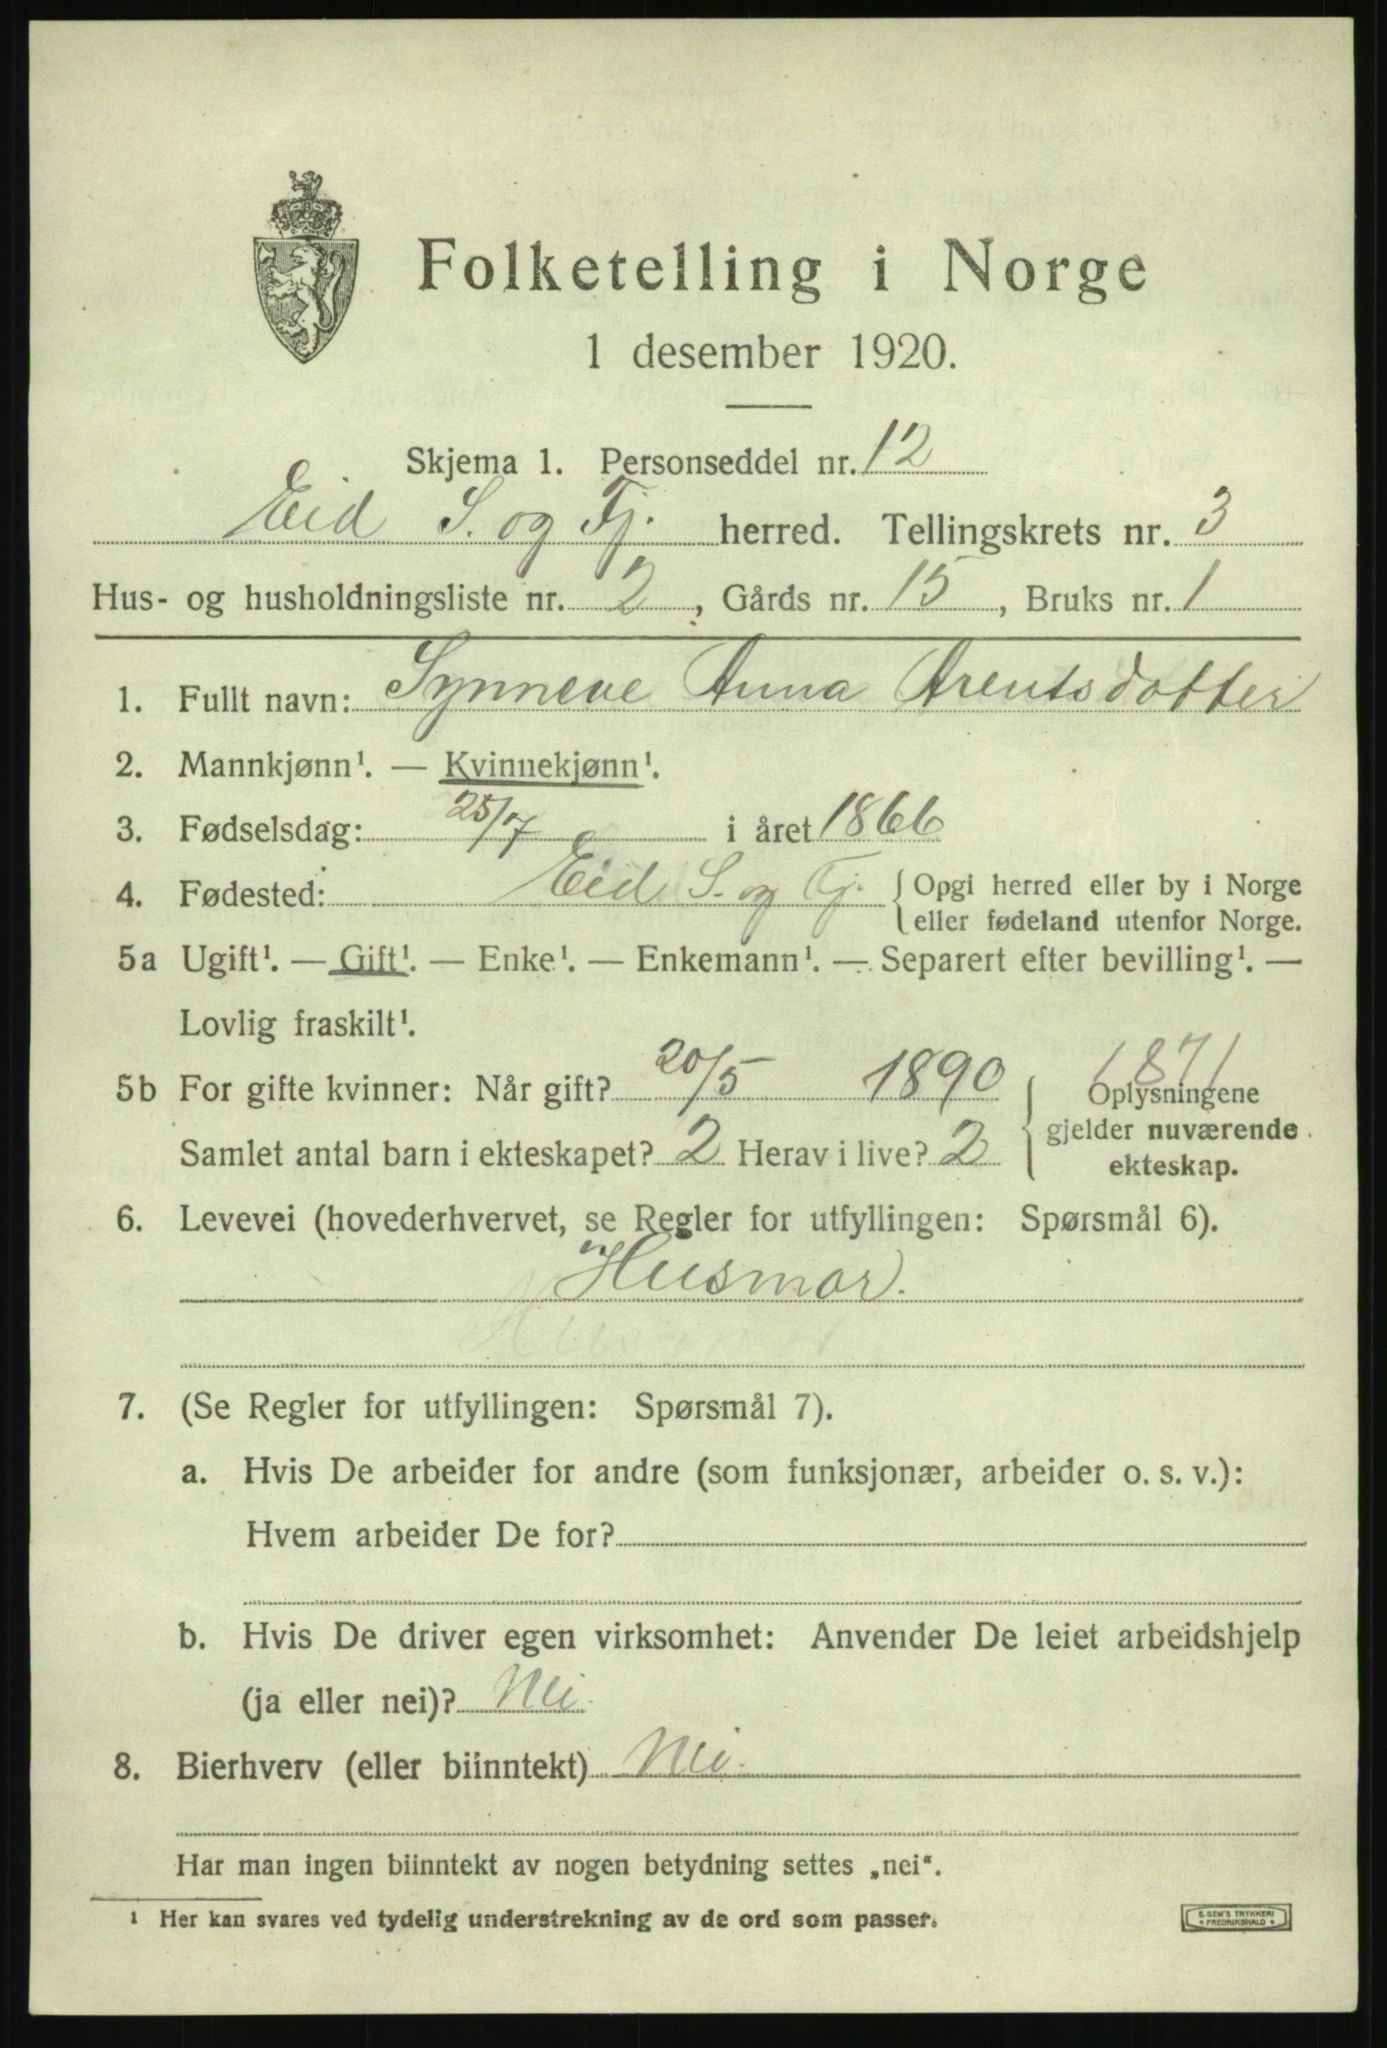 Folketelling i Norge
1 desember 1920.
Skjema 1. Personseddel nr. 12
Eid S. og Fj. herred. Tellingskrets nr. 3
Hus- og husholdningsliste nr. 2, Gårds nr. 15, Bruks nr. 1
1. Fullt navn: Synneve Anna Arentsdotter
2. Mannkjønn¹. — Kvinnekjønn¹.
3. Fødselsdag: 25/7 i året 1866
4. Fødested: Eid S. og Fj. { Opgi herred eller by i Norge
eller fødeland utenfor Norge.
5a Ugift¹. — Gift¹. — Enke¹. — Enkemann¹. — Separert efter bevilling¹. —
Lovlig fraskilt¹.
1871
5b For gifte kvinner: Når gift? 20/5 1890 { Oplysningene
gjelder nuværende
Samlet antal barn i ekteskapet? 2 Herav i live? 2
ekteskap.
6. Levevei (hovederhvervet, se Regler for utfyllingen: Spørsmål 6).
Husmor.
7. (Se Regler for utfyllingen: Spørsmål 7).
a. Hvis De arbeider for andre (som funksjonær, arbeider o. s. v.):
Hvem arbeider De for?
b. Hvis De driver egen virksomhet: Anvender De leiet arbeidshjelp
(ja eller nei)? Nei.
8. Bierhverv (eller biinntekt) Nei.
Har man ingen biinntekt av nogen betydning settes „nei“.
¹ Her kan svares ved tydelig understrekning av de ord som passer.
E. SEM'S TRYKKERI
* FREDRIKSHALD *